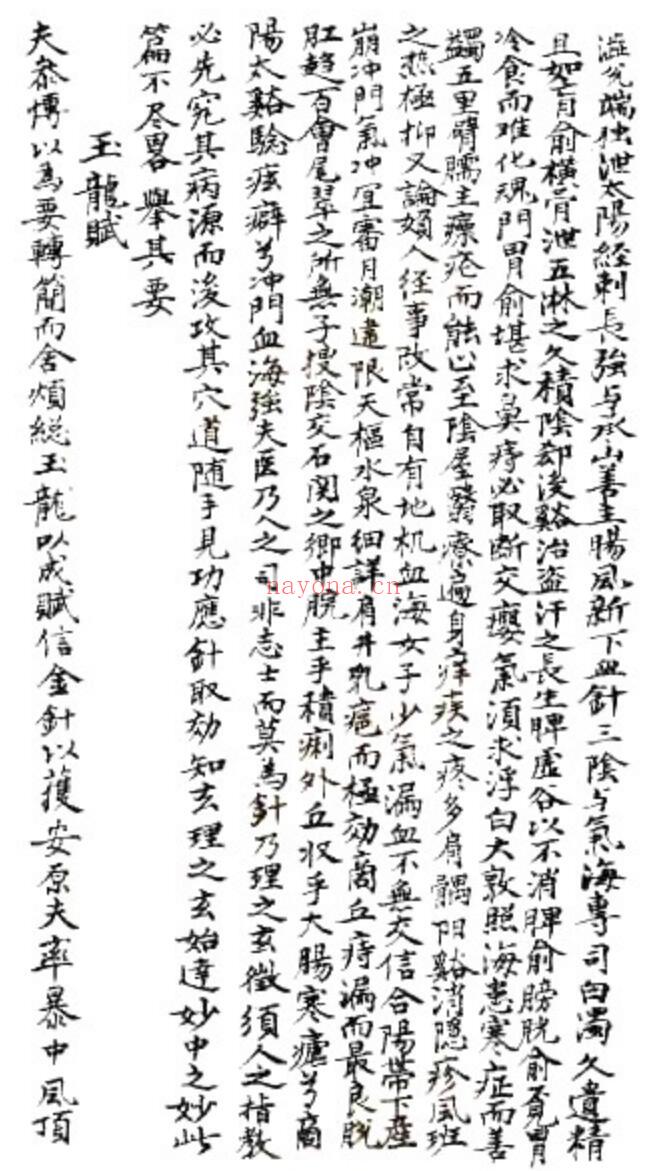 澁兑端独泄太陽経刺長強与承山善主腸風新下血針三陰与氣海專司白濁久遺精
且如肓俞横骨泄五淋之久積陰郄後谿治盗汗之長生脾虚谷以不消脾俞膀胱俞覔胃
冷食而难化魂門胃俞堪求鼻痔必取断交癭氣須求浮白大敦照海患寒疝而善
蠲五里臂臑主瘰疮而能心至陰屋翳療遍身之疼多肩髃阳谿消隐疹風班
之熱極抑又論婦人经事改常自有地机血海女子少氣漏血不無交信合陽帯下産
崩冲門氣冲宜審月潮違限天樞水泉细詳肩井乳癰而極効商丘痔漏而最良脱
肛趋百會尾翠之所無子搜陰交石関之鄉中脘主乎積痢外丘収乎大腸寒瘧兮商
陽太谿驗痃癖兮冲門血海強夫医乃人之司非志士而莫為針乃理之玄微須人之指教
必先究其病源而後攻其穴道随手見功應針取効知玄理之玄始達妙中之妙此
篇不尽畧舉其要
玉龍賦
夫参博以為要轉簡而舍煩総玉龍以成賦信金針以獲安原夫卒暴中風頂
nayona.cn